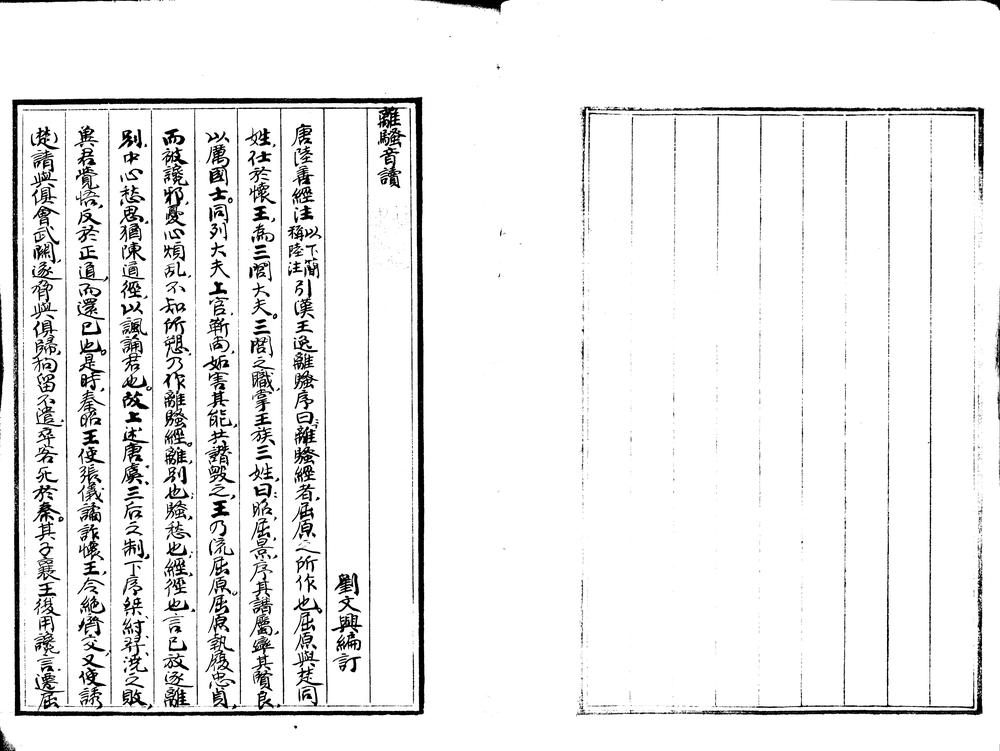 離騷音讀
劉文興編訂
唐陸善經注以下簡稱陸注引漢王逸離騷序曰、離騷經者、屈原之所作也、屈原與楚同
姓、仕於懷王、為三閭大夫。三閭之職、掌王族三姓、曰昭、屈、景、序其譜屬、率其賢良、
以厲國士。同列大夫上官、靳尚、妬害其能、共譖毀之、王乃流屈原。屈原執履忠貞、
而被讒邪、憂心煩乱、不知所愬、乃作離騷經。離、別也、騷、愁也、經、徑也、言已放逐離
別、中心愁思、猶陳道徑、以諷諭君也。故上述唐虞、三后之制、下序桀紂、羿、澆之敗、
兾君覺悟、反於正道、而還已也。是時、秦昭王使張儀譎詐懷王、令絕齊交、又使誘
楚、請與俱會武關、遂脅與俱歸、拘留不遣、卒客死於秦。其子襄王復用讒言、遷屈